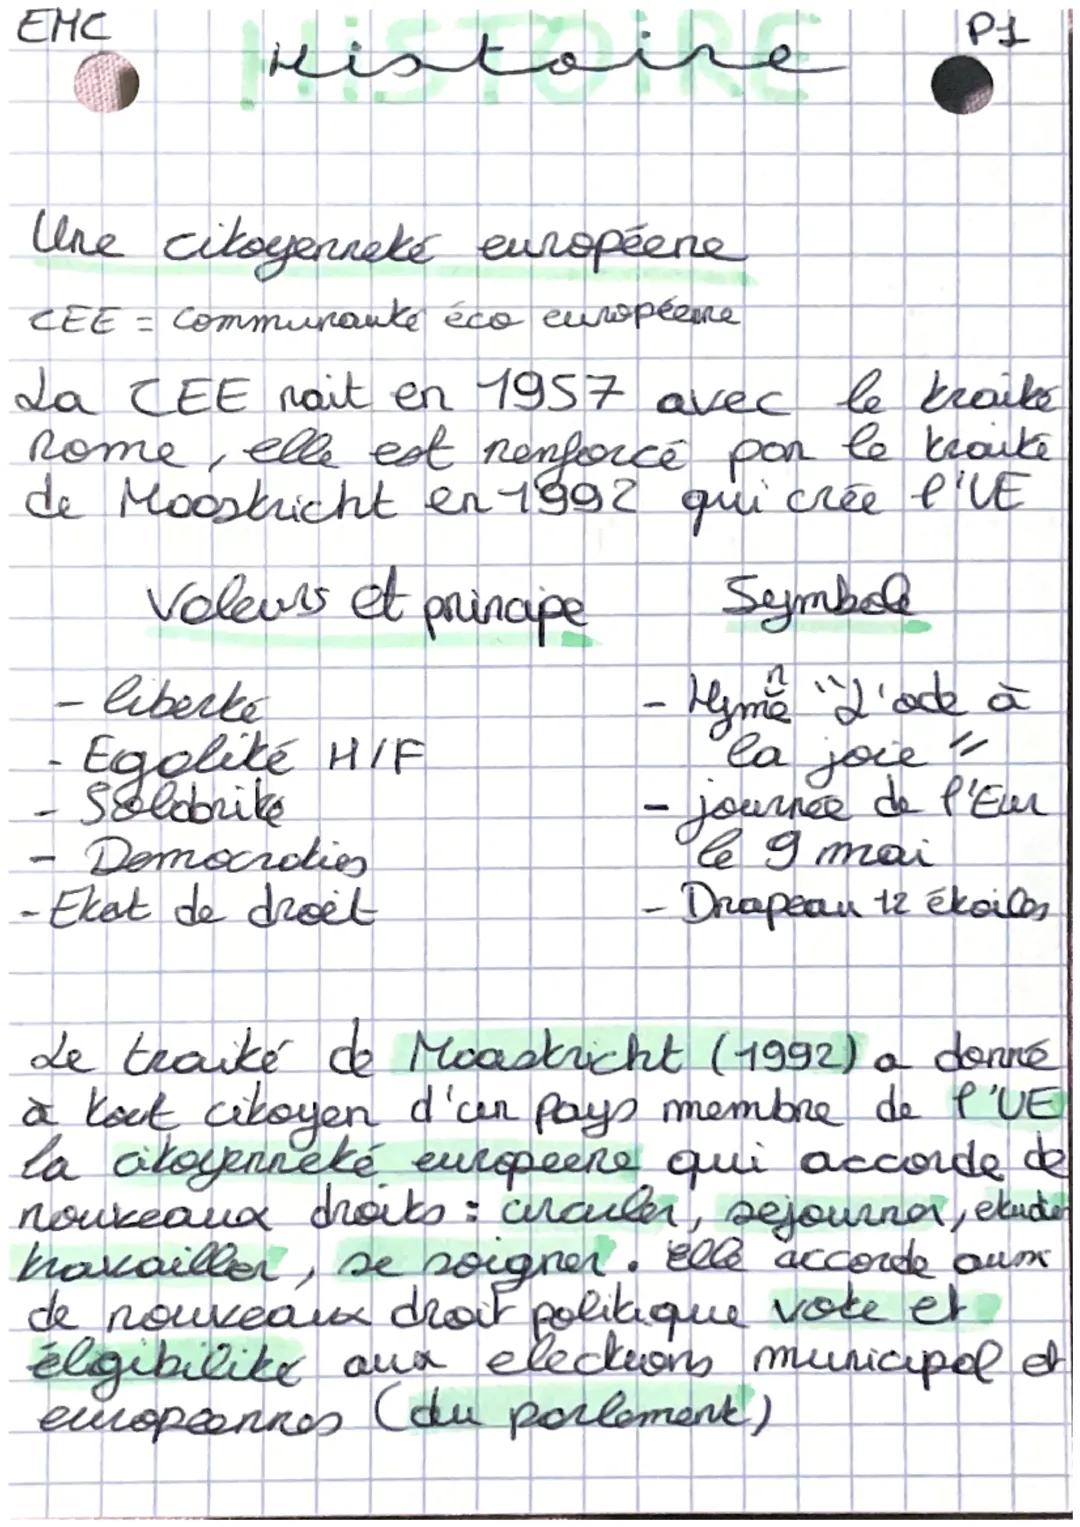 EMC
HiSTOiRE
Histoire
P1
Une citoyenneté européene
CEE = Communauté éco européene
La CEE nait en 1957 avec le traité
Rome, elle est renforcé par le traité
de Maastricht en 1992 qui crée l'UE
Valeurs et principe
Symbole
- liberté
- Egalité H/F
- Solidarité
- Démocraties
- Etat de droit
- Hymne "L'ode à
la joie"
- journée de l'Eur
le 9 mai
- Drapeau 12 étoiles
Le traité de Maastricht (1992) a donné
à tout citoyen d'un pays membre de l'UE
la citoyenneté europeene qui accorde de
nouveaux droits : circuler, sejourner, etudier
travailler, se soigner. Elle accorde aussi
de nouveaux droit politique vote et
éligibilité aux elections municipal et
européannes (du parlement)